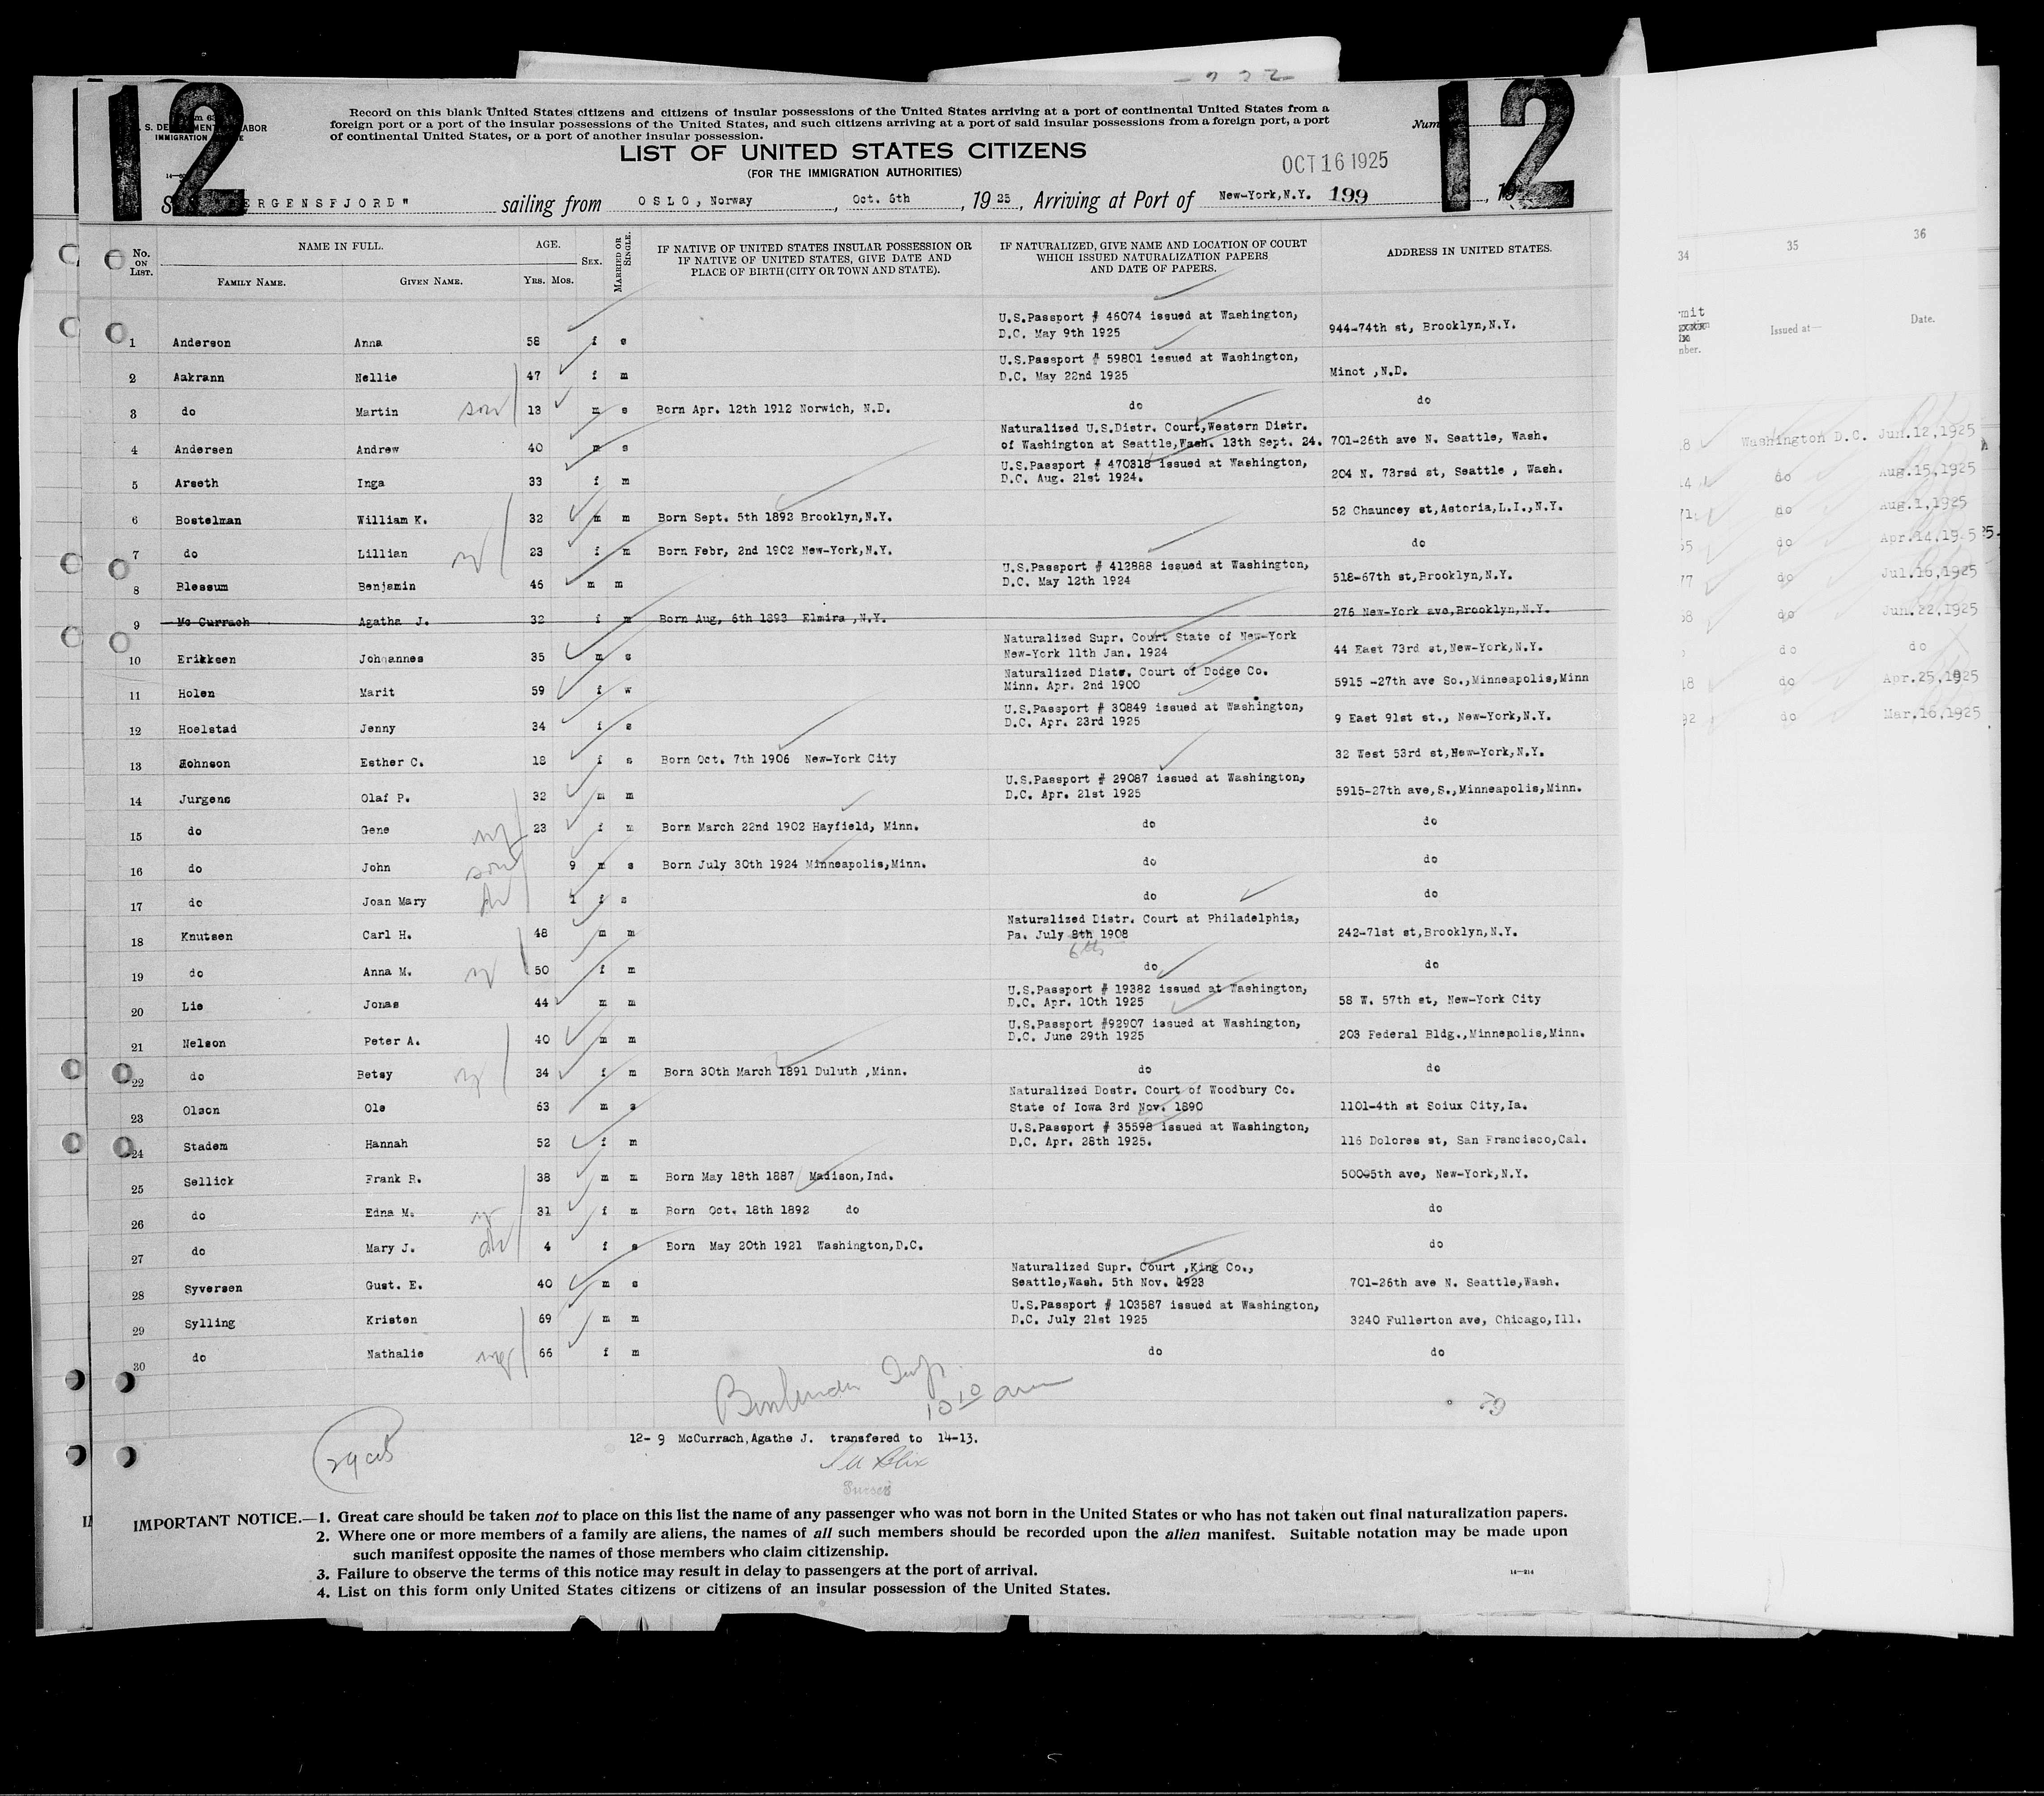 12
12
Record on this blank United States citizens and citizens of insular possessions of the United States arriving at a port of continental United States from a
foreign port or a port of the insular possessions of the United States, and such citizens arriving at a port of said insular possessions from a foreign port, a port
of continental United States, or a port of another insular possession.
LIST OF UNITED STATES CITIZENS
(FOR THE IMMIGRATION AUTHORITIES)
OCT 16 1925
ERGENSFJORD" sailing from OSLO, Norway, Oct. 6th, 1925, Arriving at Port of New-York,N.Y. 199
No. ON LIST. NAME IN FULL. AGE. SEX. MARRIED OR SINGLE. IF NATIVE OF UNITED STATES INSULAR POSSESSION OR IF NATIVE OF UNITED STATES, GIVE DATE AND PLACE OF BIRTH (CITY OR TOWN AND STATE). IF NATURALIZED, GIVE NAME AND LOCATION OF COURT WHICH ISSUED NATURALIZATION PAPERS AND DATE OF PAPERS. ADDRESS IN UNITED STATES.
FAMILY NAME. GIVEN NAME. YRS. MOS.
1 Anderson Anna 58 f s U.S.Passport # 46074 issued at Washington, D.C. May 9th 1925 944-74th st, Brooklyn,N.Y.
2 Aakrann Nellie 47 f m U.S.Passport # 59801 issued at Washington, D.C. May 22nd 1925 Minot ,N.D.
3 do Martin son 13 m s Born Apr. 12th 1912 Norwich, N.D. do do
4 Andersen Andrew 40 m s Naturalized U.S.Distr. Court,Western Distr. of Washington at Seattle,Wash. 13th Sept. 24. 701-26th ave N. Seattle, Wash.
5 Arseth Inga 33 f m U.S.Passport # 470318 issued at Washington, D.C. Aug. 21st 1924. 204 N. 73rsd st, Seattle , Wash.
6 Bostelman William K. 32 m m Born Sept. 5th 1893 Brooklyn,N.Y. 52 Chauncey st,Astoria,L.I.,N.Y.
7 do Lillian w 23 f m Born Febr, 2nd 1902 New-York,N.Y. do
8 Blessum Benjamin 46 m m U.S.Passport # 412888 issued at Washington, D.C. May 12th 1924 518-67th st,Brooklyn,N.Y.
9 Mc Currach Agatha J. 32 f m Born Aug, 6th 1893 Elmira ,N.Y. 276 New-York ave,Brooklyn,N.Y.
10 Erikksen Johannes 35 m s Naturalized Supr. Court State of New-York New-York 11th Jan. 1924 44 East 73rd st,New-York,N.Y.
11 Holen Marit 59 f w Naturalized Distr. Court of Dodge Co. Minn. Apr. 2nd 1900 5915 -27th ave So.,Minneapolis,Minn
12 Hoelstad Jenny 34 f s U.S.Passport # 30849 issued at Washington, D.C. Apr. 23rd 1925 9 East 91st st., New-York,N.Y.
13 Johnson Esther C. 18 f s Born Oct. 7th 1906 New-York City 32 West 53rd st,New-York,N.Y.
14 Jurgens Olaf P. 32 m m U.S.Passport # 29087 issued at Washington, D.C. Apr. 21st 1925 5915-27th ave,S.,Minneapolis,Minn.
15 do Gene 23 f m Born March 22nd 1902 Hayfield, Minn. do do
16 do John son 9 m s Born July 30th 1924 Minneapolis,Minn. do do
17 do Joan Mary 1 f s do do
18 Knutsen Carl H. 48 m m Naturalized Distr. Court at Philadelphia, Pa. July 8th 1908 6th 242-71st st,Brooklyn,N.Y.
19 do Anna M. w 50 f m do do
20 Lie Jonas 44 m m U.S.Passport # 19382 issued at Washington, D.C. Apr. 10th 1925 58 W. 57th st, New-York City
21 Nelson Peter A. 40 m m U.S.Passport #92907 issued at Washington, D.C. June 29th 1925 203 Federal Bldg.,Minnepolis,Minn.
22 do Betsy 34 f m Born 30th March 1891 Duluth ,Minn. do do
23 Olson Ole 63 m s Naturalized Dostr. Court of Woodbury Co. State of Iowa 3rd Nov. 1890 1101-4th st Soiux City,Ia.
24 Stadem Hannah 52 f m U.S.Passport # 35598 issued at Washington, D.C. Apr. 28th 1925. 116 Dolores st, San Francisco,Cal.
25 Sellick Frank R. 38 m m Born May 18th 1887 Madison,Ind. 500-5th ave, New-York,N.Y.
26 do Edna M. 31 f m Born Oct. 18th 1892 do do
27 do Mary J. 4 f s Born May 20th 1921 Washington,D.C. do
28 Syversen Gust. E. 40 m s Naturalized Supr. Court ,King Co., Seattle,Wash. 5th Nov. 1923 701-26th ave N. Seattle,Wash.
29 Sylling Kristen 69 m m U.S.Passport # 103587 issued at Washington, D.C. July 21st 1925 3240 Fullerton ave, Chicago,Ill.
30 do Nathalie 66 f m do do
10 10 am
12- 9 McCurrach,Agathe J. transfered to 14-13.
Purser
IMPORTANT NOTICE.—1. Great care should be taken not to place on this list the name of any passenger who was not born in the United States or who has not taken out final naturalization papers.
2. Where one or more members of a family are aliens, the names of all such members should be recorded upon the alien manifest. Suitable notation may be made upon
such manifest opposite the names of those members who claim citizenship.
3. Failure to observe the terms of this notice may result in delay to passengers at the port of arrival.
4. List on this form only United States citizens or citizens of an insular possession of the United States.
14—214
34 35 36
Issued at— Date.
Washington D.C. Jun.12,1925
do Aug.15,1925
do Aug.1,1925
do Apr.14,1925
do Jul.16,1925
do Jun.22,1925
do do
do Apr.25,1925
do Mar.16,1925